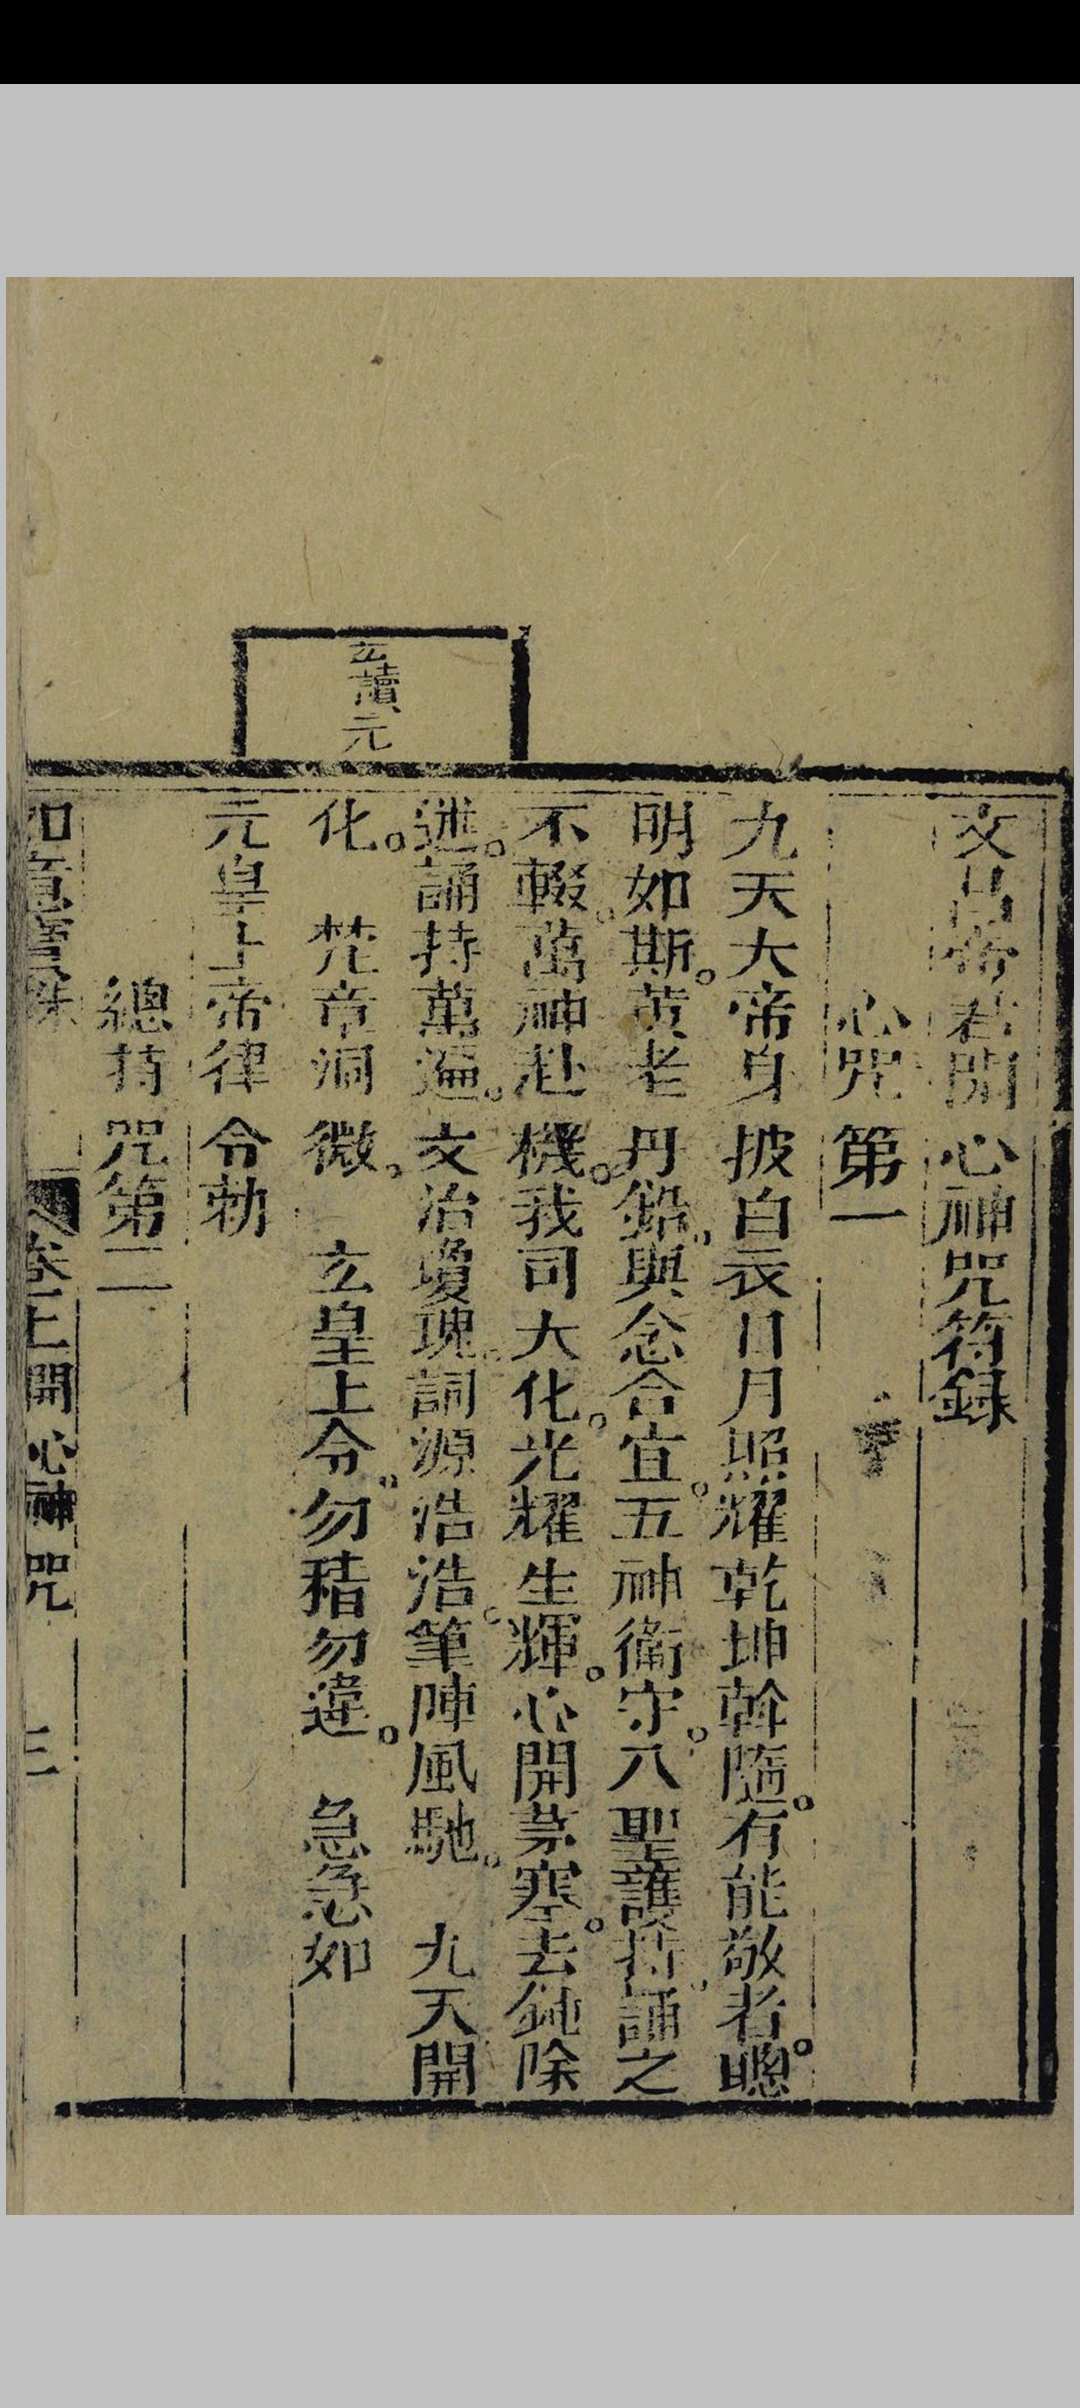 文昌帝君開心神咒符録
心咒第一
九天大帝身披白衣日月照耀乾坤斡隨。有能敬者。聰
明如斯。黄老丹鉛、與念合宜。五神衛守。八聖護持、誦之
不輟。萬神赴機。我司大化。光耀生輝。心開茅塞。去鈍除
迷。誦持萬遍。文治瓊瑰。詞源浩浩。筆陣風馳。九天開
化。梵章洞微。玄皇上令。勿稽勿違。急急如
元皇上帝律令勅
總持咒第二
玄讀元
如意寶珠
卷上開心神咒
三